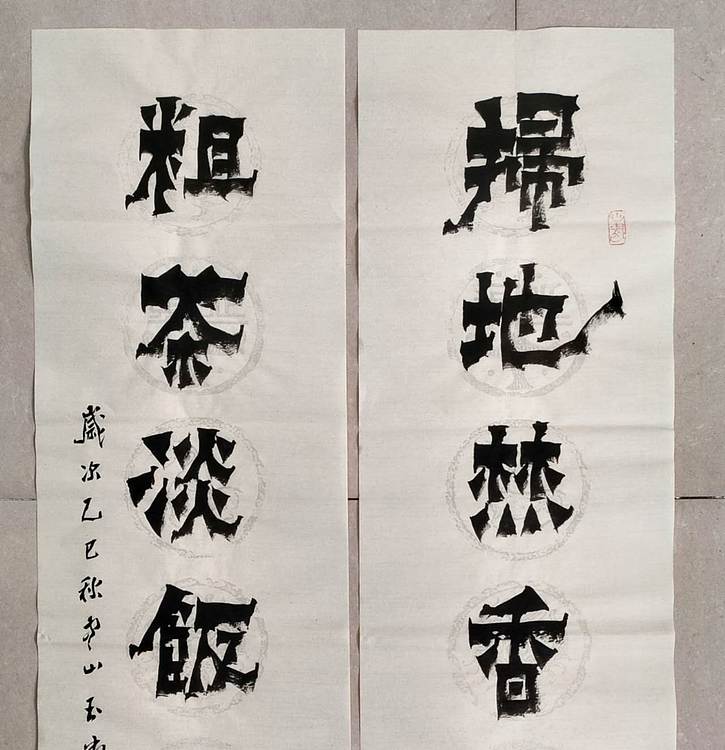 掃地焚香
粗茶淡飯
歲次乙巳秋 山玉